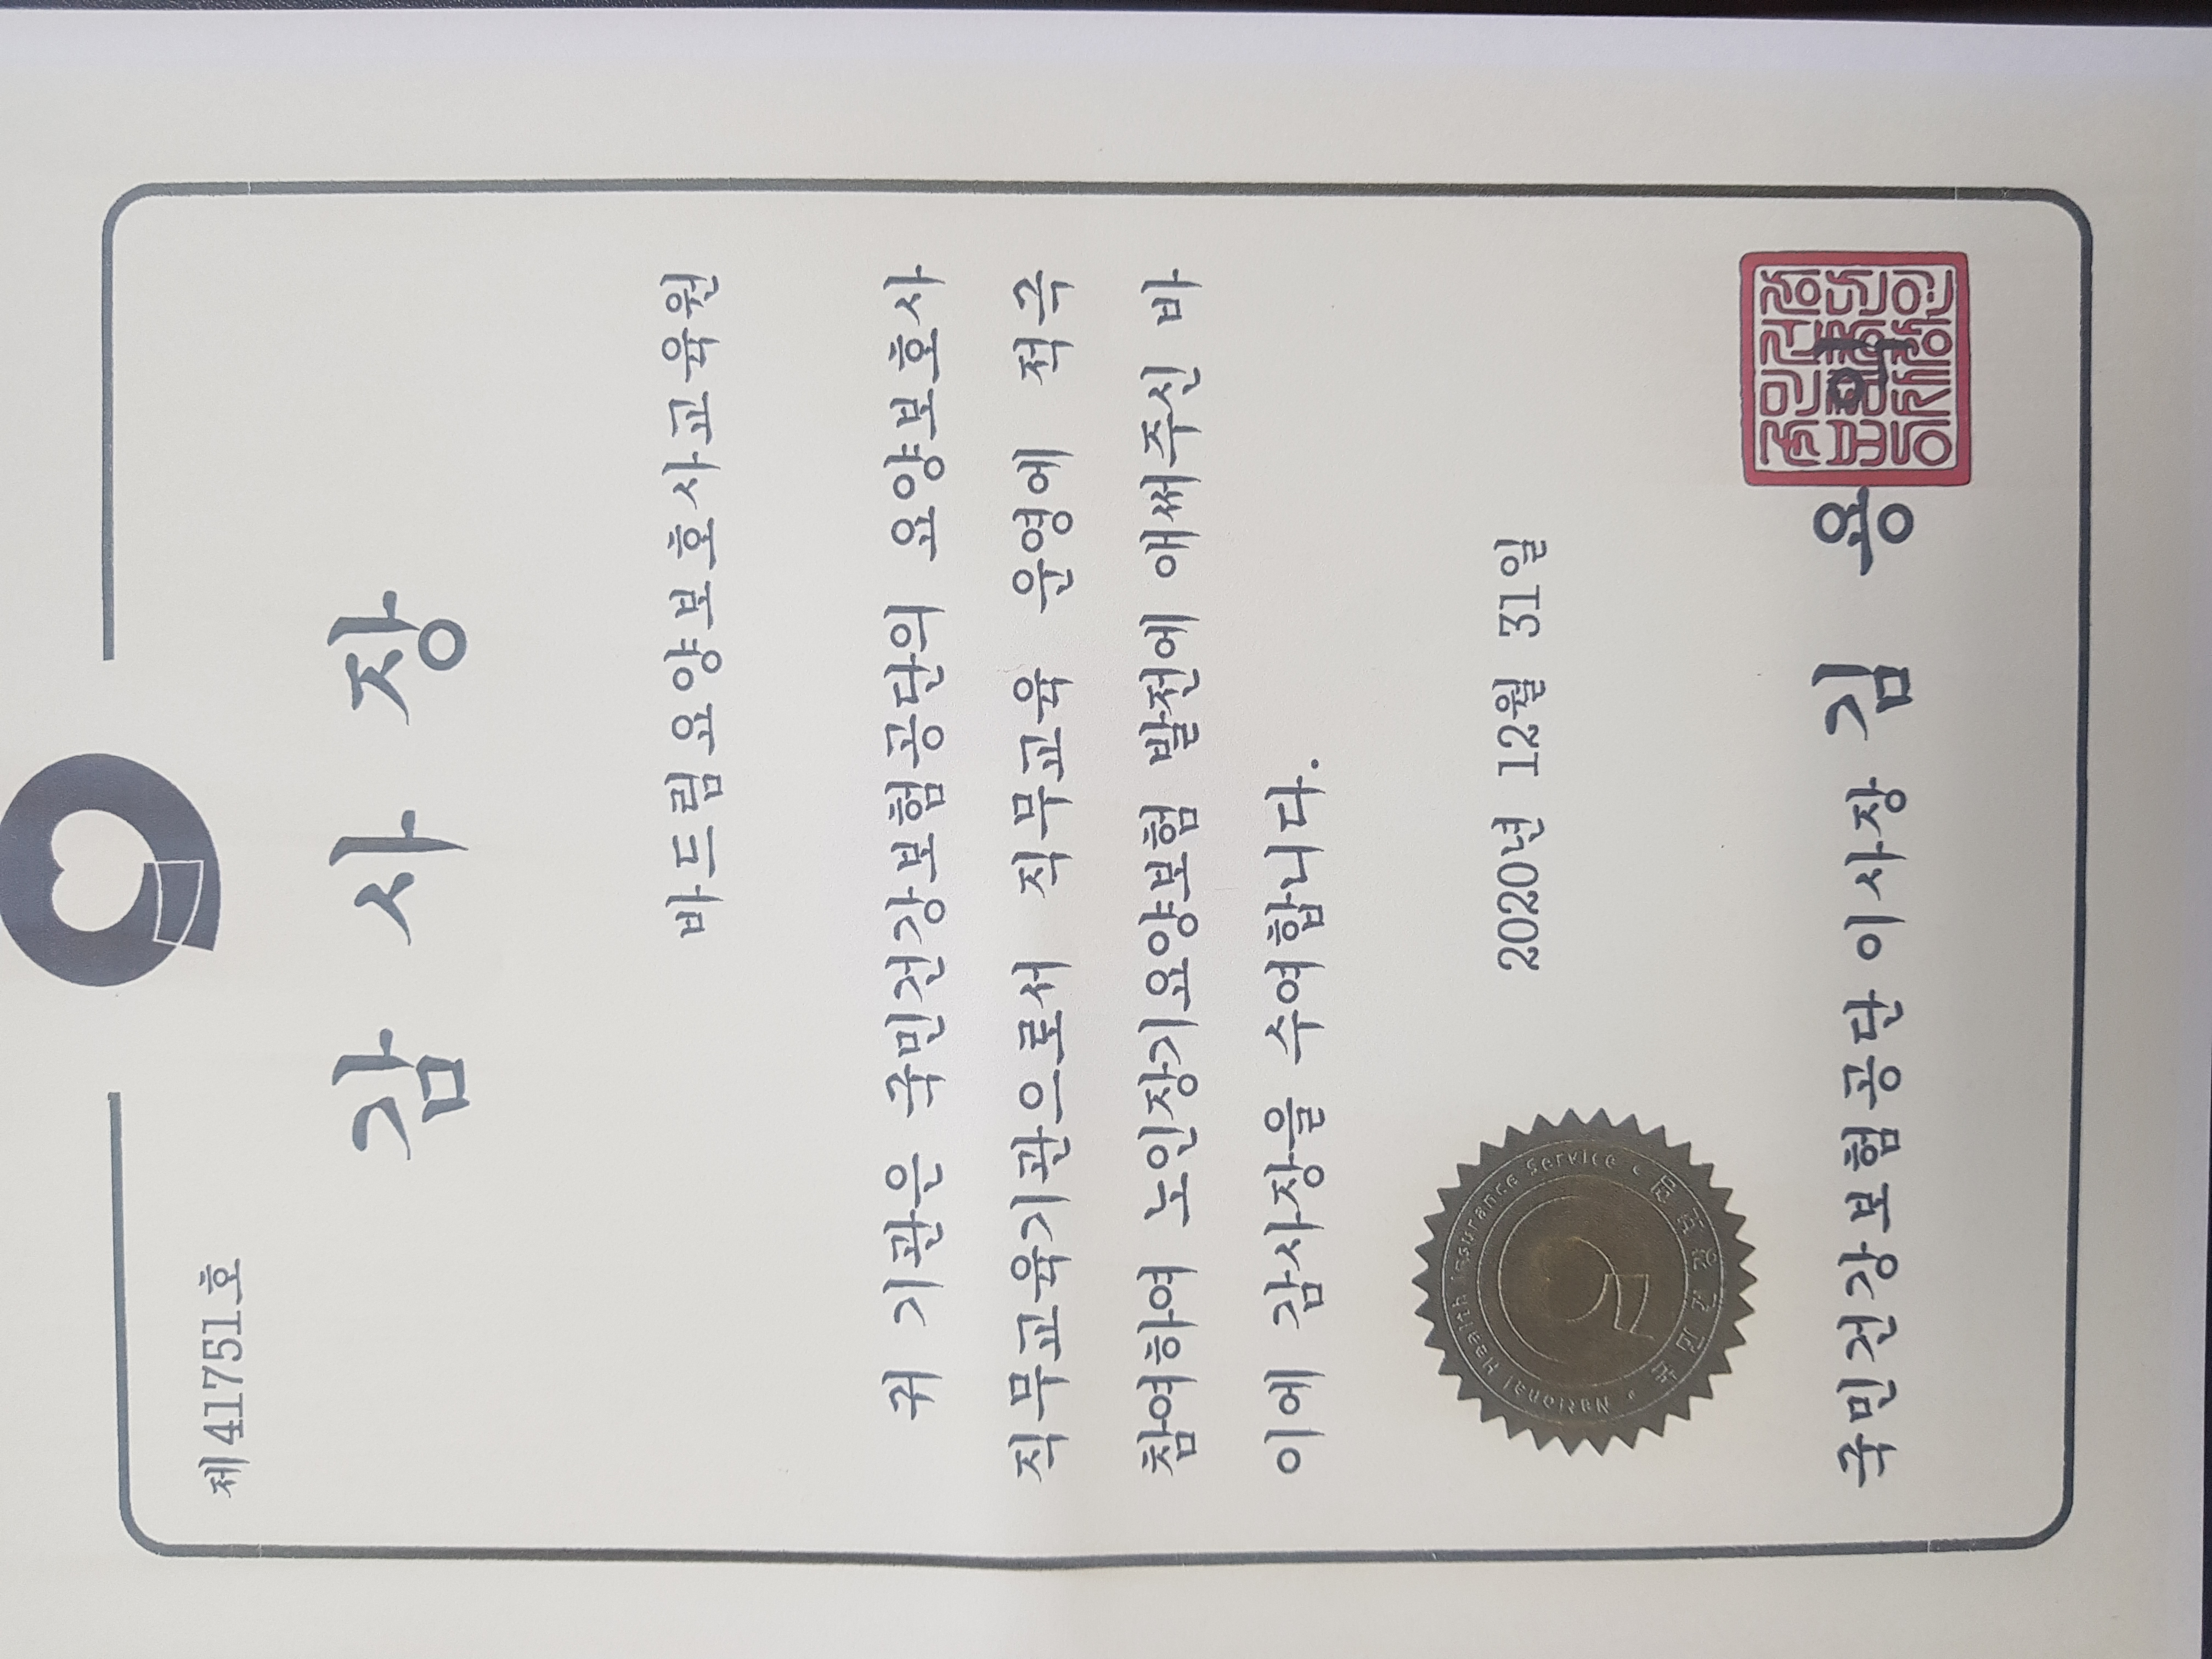 제41751호
감 사 장
바드림요양보호사교육원
귀 기관은 국민건강보험공단의 요양보호사
직무교육기관으로서 직무교육 운영에 적극
참여하여 노인장기요양보험 발전에 애써주신 바
이에 감사장을 수여합니다.
2020년 12월 31일
National Health Insurance Service
국민건강보험
국민건강보험공단 이사장 김 용 익
국민건강
보험공단
이사장인